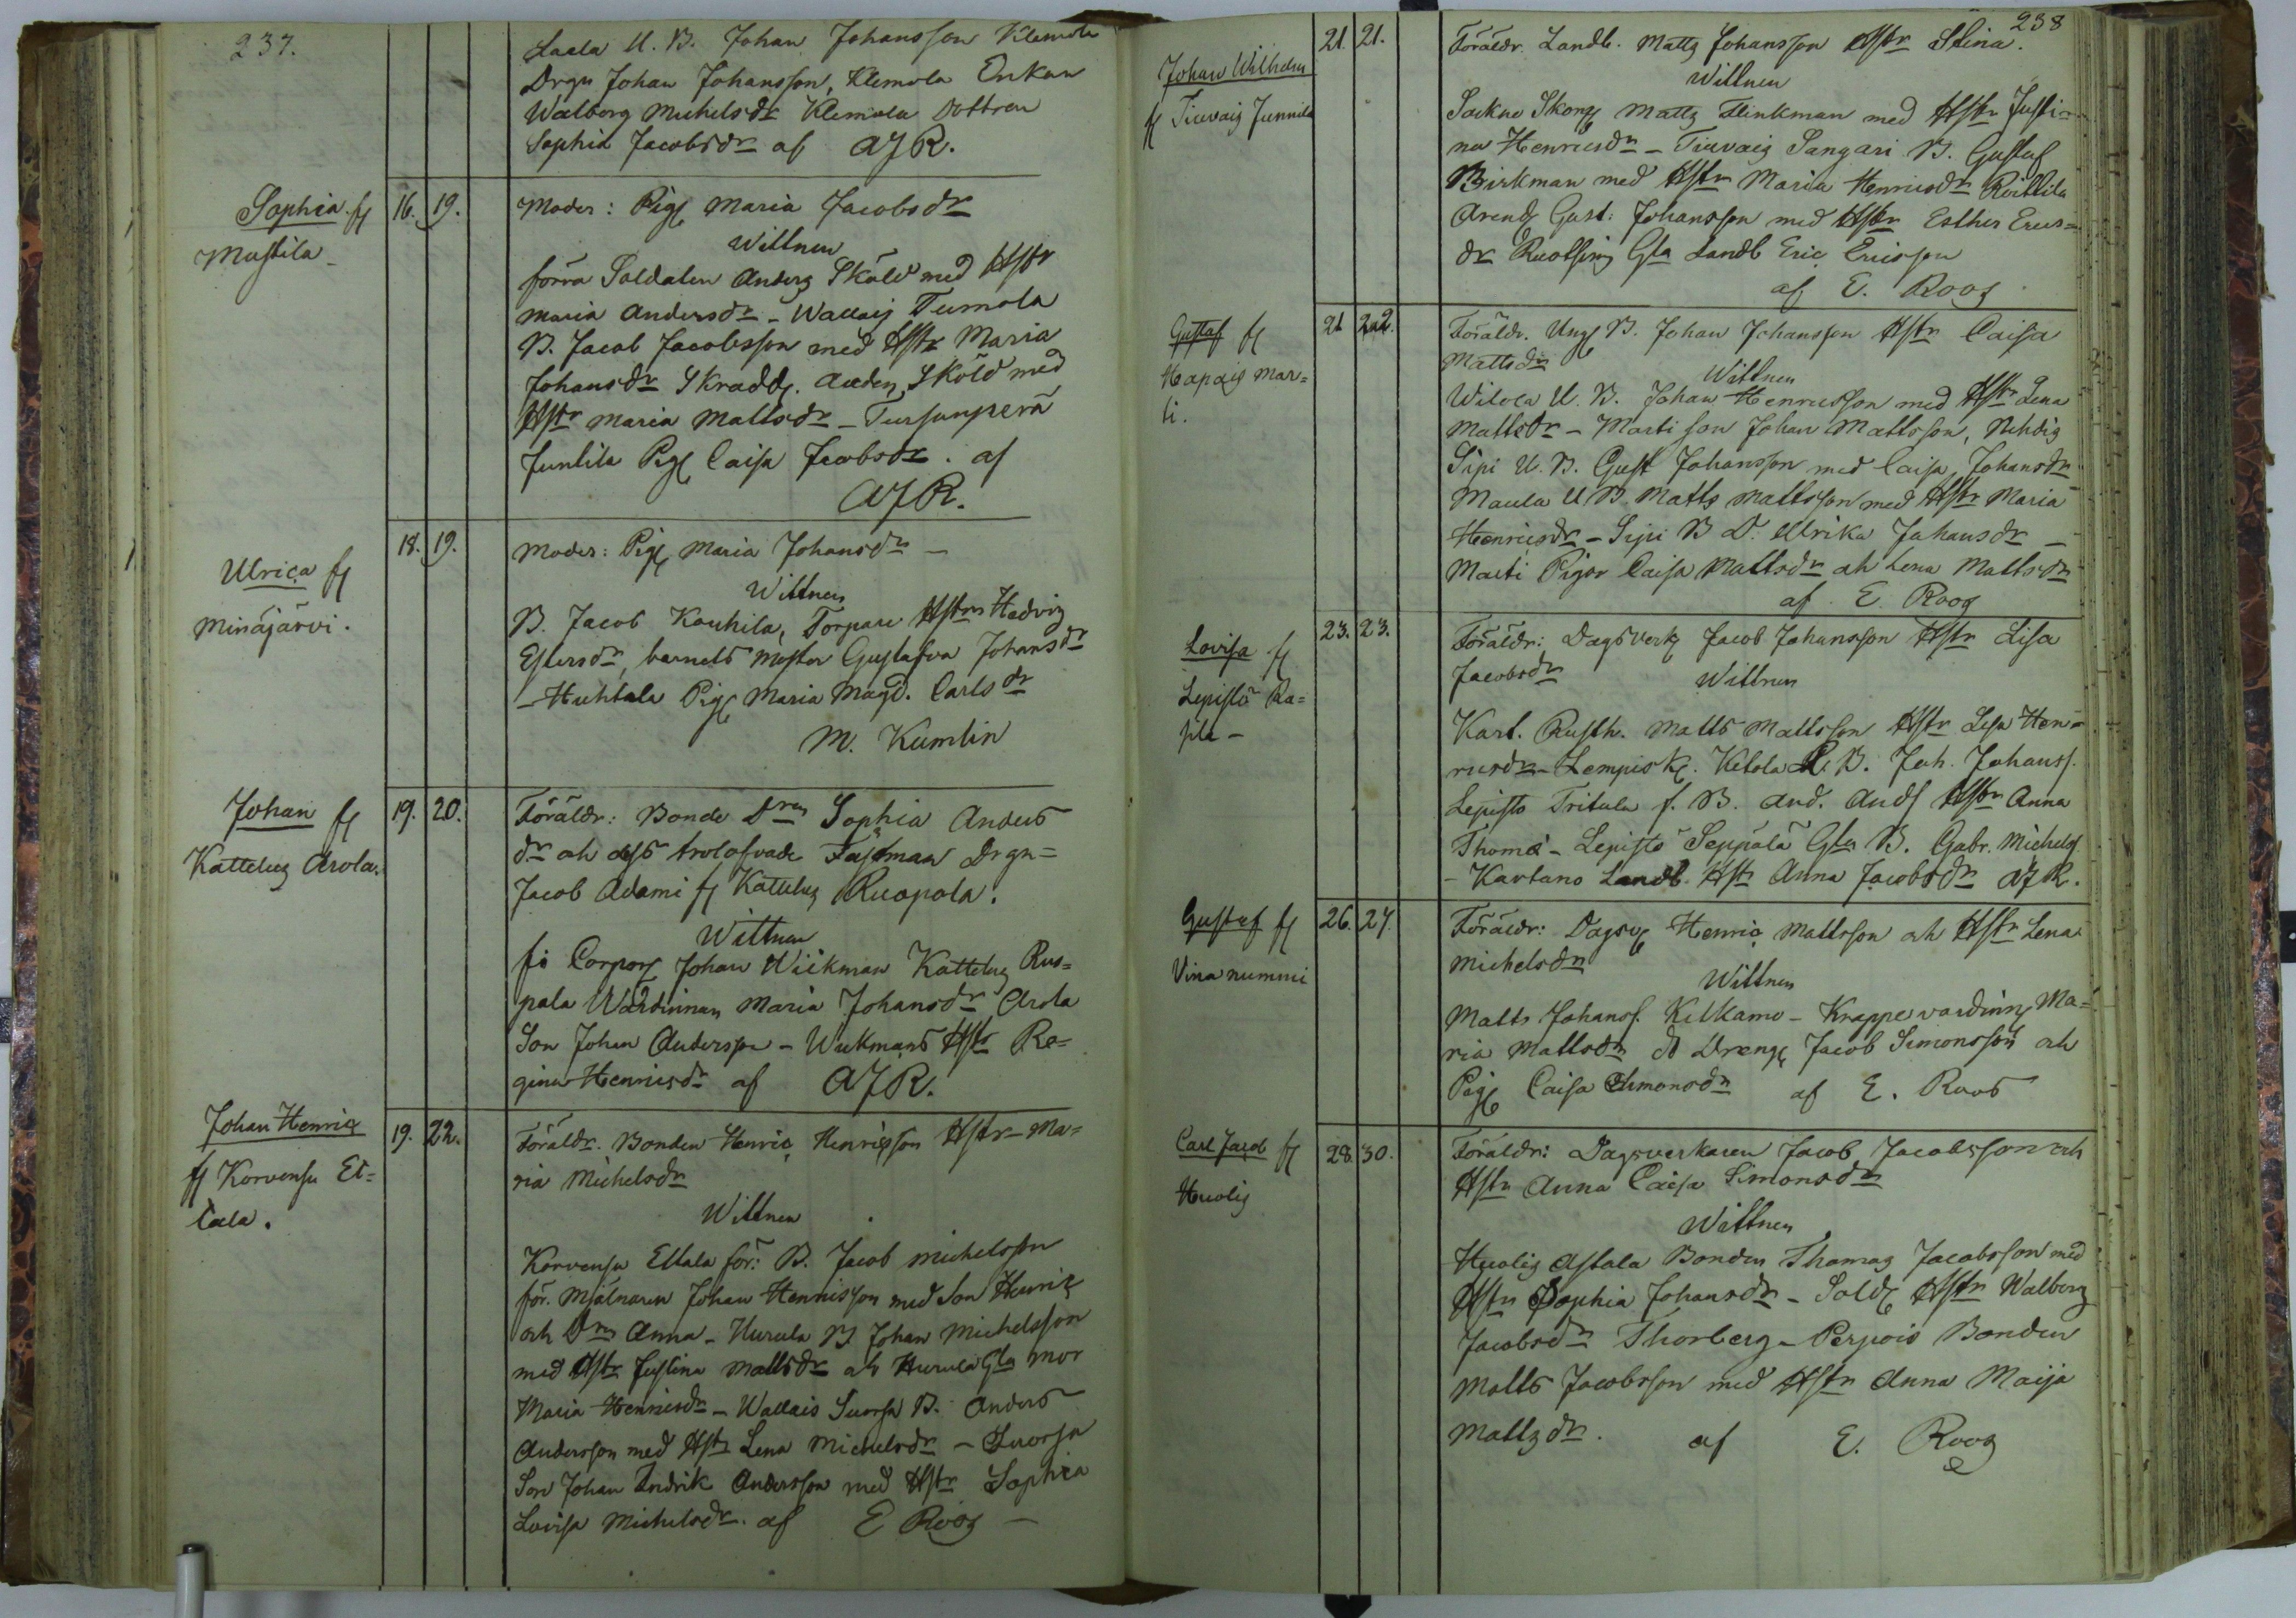 237.
Laela U. B. Johan Johansson Klemola
Drgn Johan Johansson, Klemola Enkan
Walborg Michelsdr Klemola Dottren
Sophia Jacobsdr af AJR.
Sophia. fl
Mustila
16. 19.
Moder: Pigl Maria Jacobsdr
Wittnen
förra Soldaten Anders Sköld med Hstr
Maria Andersdr - Wallais Tumola
B. Jacob Jacobsson med Hstr Maria
Johansdr Skradd. Anders Sköld med
Hstr Maria Mattsdr - Tursunperä
Juntila Pigl Caisa Jacobsdr. af
AJR.
Ulrica fl
Minäjärvi.
18. 19.
Moder: Pigl Maria Johansdr -
Wittnen
B. Jacob Kauhila, Torpare Hstr Hedvig
Estersdr, barnets Moster Gustafva Johansdr
- Huhtala Pigl Maria Magd. Carlsdr
M. Kumlin
Johan fl
Katteluz Arola.
19. 20.
Föräldr: Bonde Drn Sophia Anders
dr och dess trolofvade Fastman Drgn=
Jacob Adami fl Katteluz Ruopola.
Wittnen
fr Corporl Johan Wickman Katteluz Ruo=
pala Wärdinnan Maria Johansdr Arola
Son Johan Andersson - Wickmans Hstr Re=
gina Henricsdr af AJR.
Johan Henric
fl Korvensu Et=
tala.
19. 22.
Föräldr. Bonden Henric Henricsson Hstr Ma=
ria Michelsdr
Wittnen
Korvensu Ettala för: B. Jacob Michelsson
för. Mjölnaren Johan Henricsson med Son Henric
och Drn Anna - Hurula B Johan Michelsson
med Hstr Justina Mattsdr och Hurula Gla mor
Maria Henricsdr - Wallais Suorsa B. Anders
Andersson med Hstr Lena Michelsdr - Suorsa
Son Johan Indrik Andersson med Hstr Sophia
Lovisa Michelsdr. af E Roos -
238
Johan Wilhelm
fl Tiuvais Junnila
21. 21.
Föräldr. Landb. Matts Johansson Hstr Stina.
Wittnen
Sockne Skom Matts Flinkman med Hstr Justi=
na Henricsdr - Tiuvais Sangari B. Gustaf
Birkman med Hstr Maria Henricsdr Rittila
Arend Gust: Johansson med Hstr Esther Erics=
dr Ruotsin Gla Landb Eric Ericsson
af E. Roos
Gustaf fl
Hapais Mar=
ti.
21 22.
Föräldr. Ung B. Johan Johansson Hstr Caisa
Mattsdr
Wittnen
Witola U. B. Johan Henricsson med Hstr Lena
Mattsdr - Marti son Johan Mattsson,
Sipi U. B. Gust Johansson med Caisa Johansdr
Maula U B Matts Mattsson med Hstr Maria
Henricsdr - Sipi B D. Ulrika Johansdr -
Marti Pigor Caisa Mattsdr och Lena Mattsdr
af E. Roos
Lovisa fl
Lepistö Ra=
pla -
23. 23.
Föräldr: Dagsverk Jacob Johansson Hstr Lisa
Jacobsdr
Wittnen
Karl. Rusth. Matts Mattsson Hstr Lisa Hen=
ricsdr - Lempisk. Ketola B. Joh. Johanss.
Lepistö Tritula f. B. And. Ands Hstr Anna
Thoma - Lepistö Seppälä Gla B. Gabr. Michelss
- Kartano Landb. Hstr Anna Jacobsdr AJR.
Gustaf fl
Vinanummi
26. 27.
Föräldr: Dagsv Henric Mattsson och Hstr Lena
Michelsdr
Wittnen
Matts Johanss. Kilkamo - Krappe vardinn Ma=
ria Mattsdr Dreng Jacob Simonsson och
Pigl Caisa Simonsdr af E. Roos
Carl Jacob fl
Huolis
28. 30.
Föräldr: Dagsverkaren Jacob Jacobsson och
Hstr Anna Caisa Simonsdr
Wittnen
Huolis Astala Bonden Thomas Jacobsson med
Hstr Sophia Johansdr - Sold Hstr Walborg
Jacobsdr Thorberg - Perjois Bonden
Matts Jacobsson med Hstr Anna Maija
Mattsdr. af E. Roos